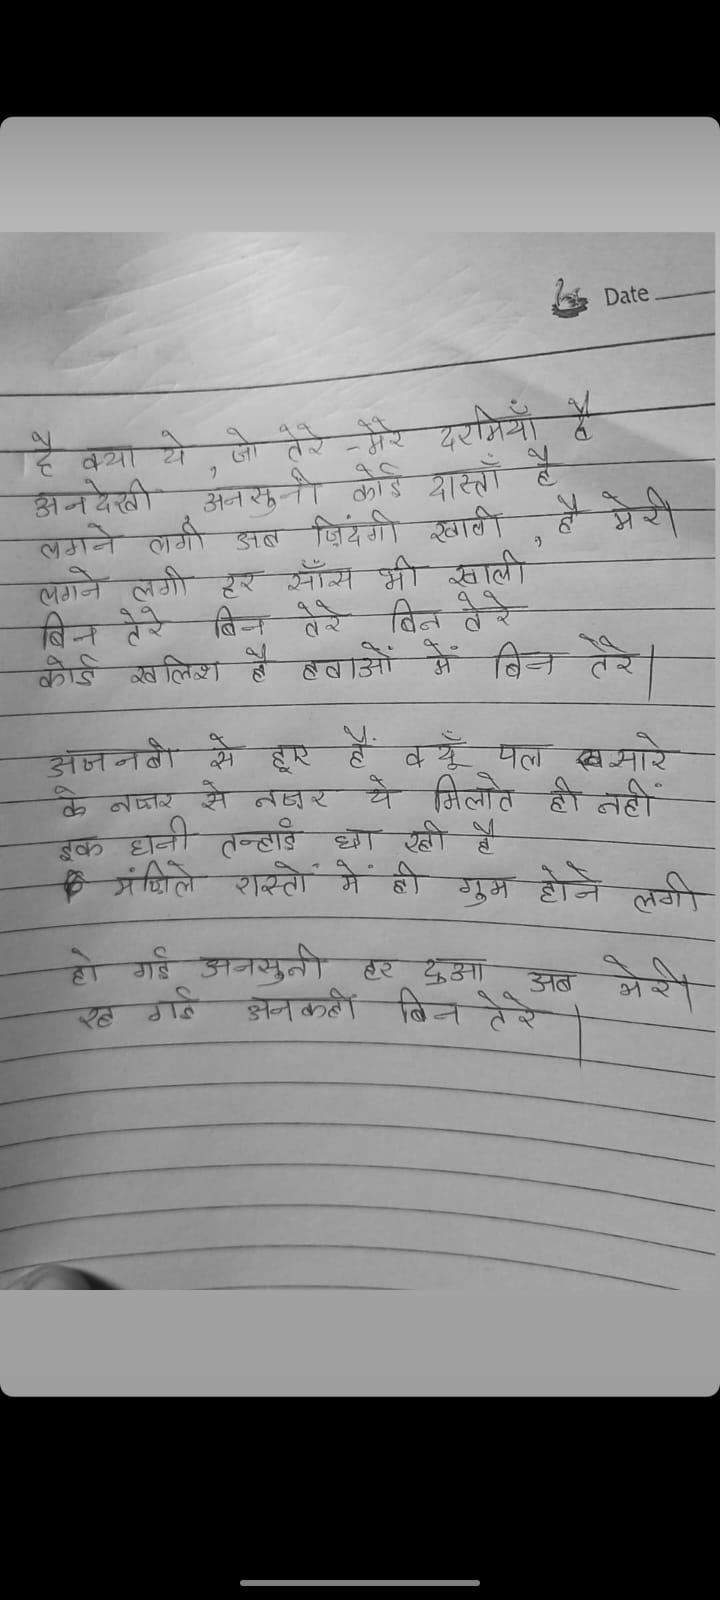 Date
है क्या ये, जो तेरे-मेरे दरमियाँ है
अनदेखी, अनसुनी कोई दास्ताँ है
लगने लगी अब ज़िंदगी खाली, है मेरी।
लगने लगी हर साँस भी खाली
बिन तेरे बिन तेरे बिन तेरे
कोई खलिश है हवाओं में बिन तेरे।
अजनबी से हूए हैं क्यूँ पल सारे
के नज़र से नज़र ये मिलाते ही नहीं
इक घनी तन्हाई छा रही है
मंज़िले रास्तों में ही गुम होने लगी
हो गई अनसुनी हर दुआ अब मेरी।
रह गई अनकही बिन तेरे।